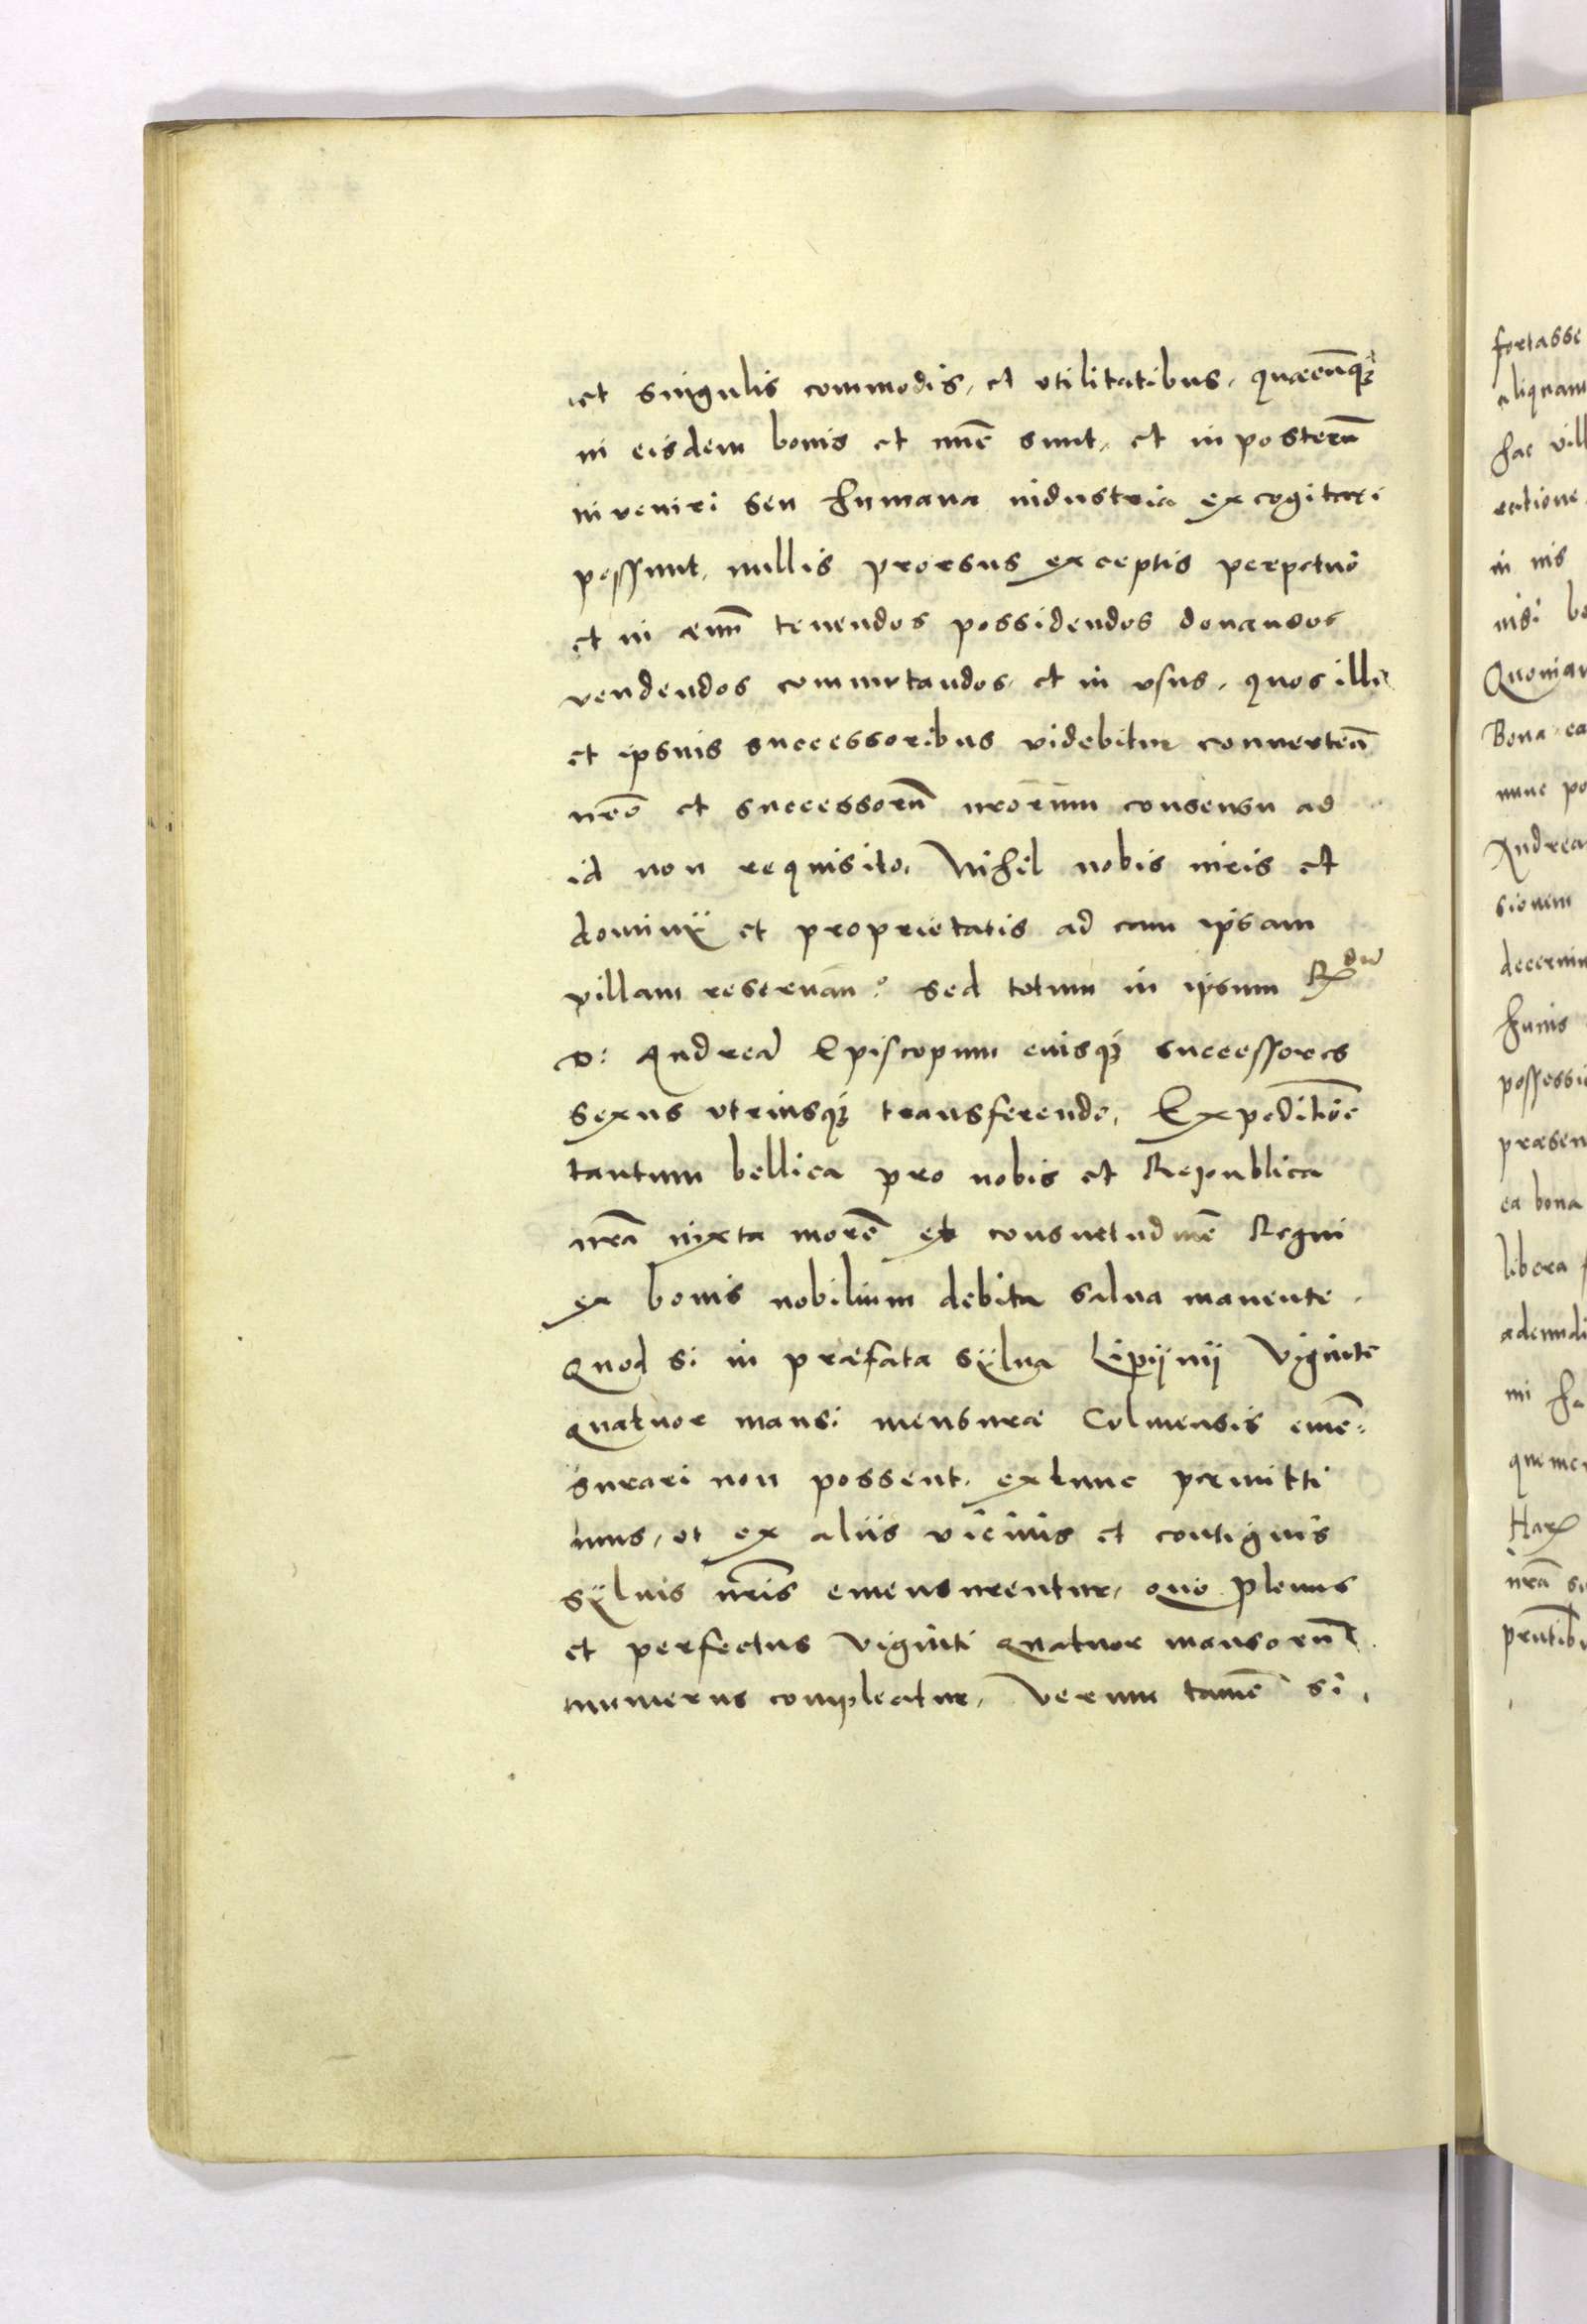 et singulis commodis, et vtilitatibus, quæcūqȝ
in eisdem bonis et nūc sunt, et in posterū
inveniri seu humana industria excogitari
possunt, nullis prorsus exceptis perpetuo
et in æuū tenendos possidendos donandos
vendendos commutandos, et in vsus, quos illi
et ipsius successoribus videbitur conuerten̄
nr̄o et successorū nr̄orum consensu ad
id non requisito, Nihil nobis iuris et
dominij et proprietatis ad eam ipsam
villam reseruan̄: sed totum in ipsum R̄dū
D: Andreā Episcopum eiusqȝ successores
sexus vtriusqȝ transferendo, Expeditiōe
tantum bellica pro nobis et Republica
nrā iuxta morē et consuetudinē Regni
ex bonis nobilium debita salua manente.
Quod si in præfata sylua Lipijnij Viginti
quatuor mansi mensuræ Colmensis emē:
surari non possent, extunc permitti
mus, vt ex aliis vicinis et contiguis
syluis nr̄is emensurentur, quo plenus
et perfectus viginti quatuor mansorū
numerus compleatur, Verum tamē si,
fortasse
aliquam
hac vill
ratione
in nis
nisi bo
Quoniam
Bona ea
nunc po
Andrea
sionem
decernim
huius
possessi
præsen
ea bona
libera
mi ha
quemcr
Har
nrā su